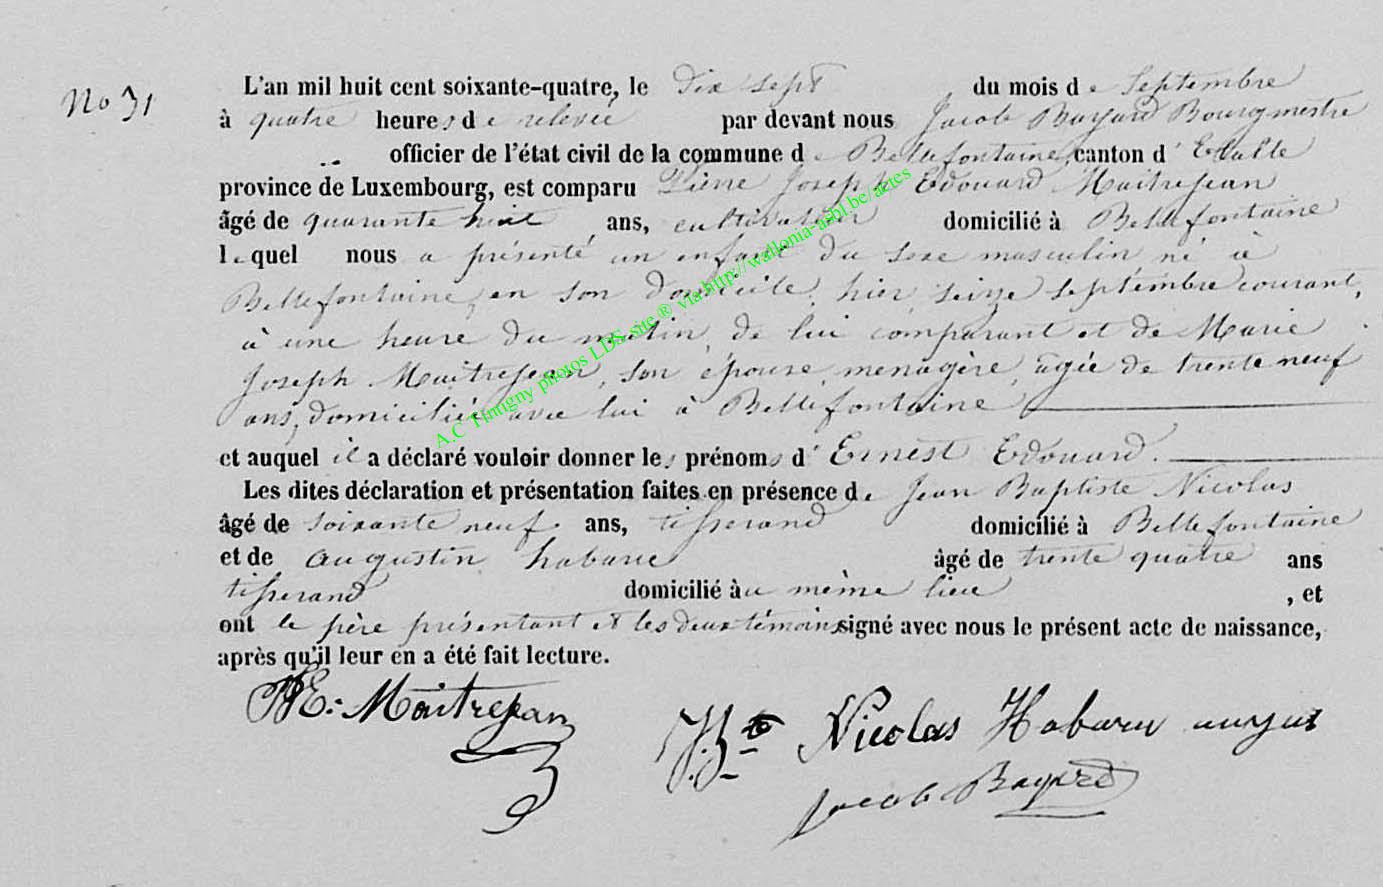 No 31
L'an mil huit cent soixante-quatre, le dix sept du mois de Septembre
à quatre heures de relevée par devant nous Jacob Bayard Bourgmestre
officier de l'état civil de la commune de Bellefontaine, canton d' Etalle
province de Luxembourg, est comparu Pierre Joseph Edouard Maitrejean
âgé de quarante huit ans, cultivateur domicilié à Bellefontaine
lequel nous a présenté un enfant du sexe masculin né à
Bellefontaine, en son domicile, hier seize septembre courant,
à une heure du matin, de lui comparant et de Marie
Joseph Maitrejean, son épouse, menagère, agée de trente neuf
ans, domiciliée avec lui à Bellefontaine
et auquel il a déclaré vouloir donner les prénoms d' Ernest Edouard.
Les dites déclaration et présentation faites en présence de Jean Baptiste Nicolas
âgé de soixante neuf ans, tisserand domicilié à Bellefontaine
et de augustin habaru âgé de trente quatre ans
tisserand domicilié àu même lieu , et
ont le père présentant et les deux témoins signé avec nous le présent acte de naissance,
après qu'il leur en a été fait lecture.
E. Maitrejean J. Bte Nicolas Habaru august
Jacob Bayard
A.C Tintigny photos LDS site ® via http://wallonia-asbl.be/actes